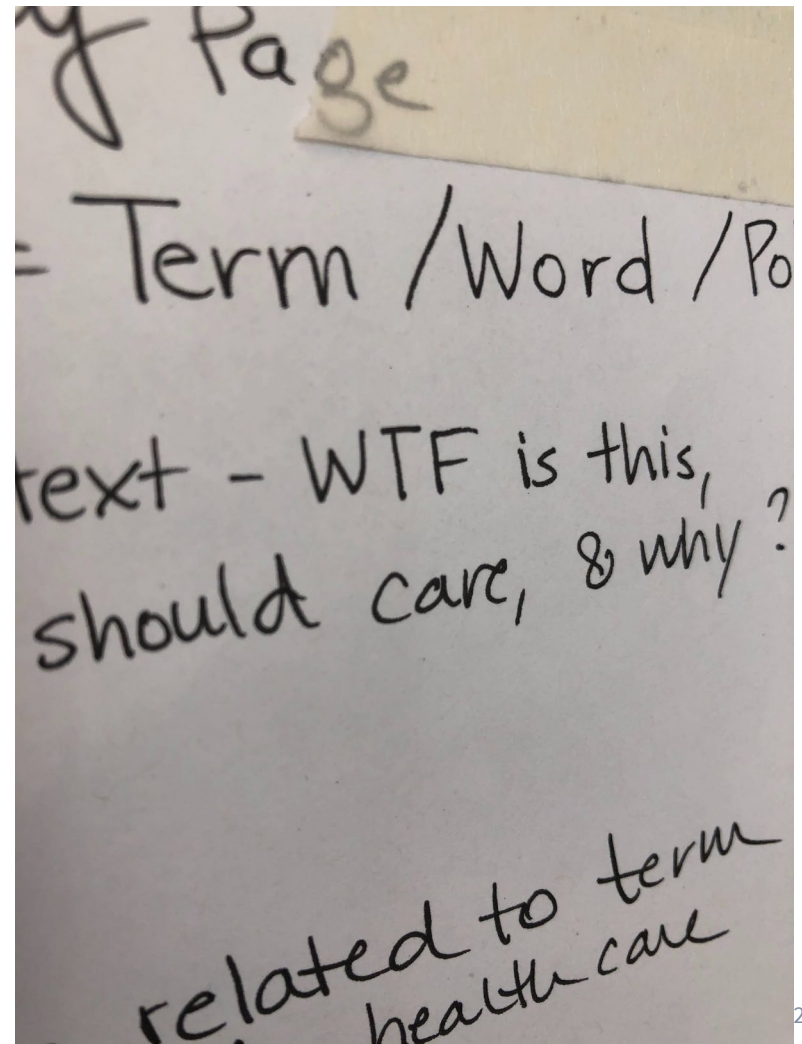 y Page
= Term / Word / Po
text - WTF is this,
should care, & why?
related to term
healthcare
2